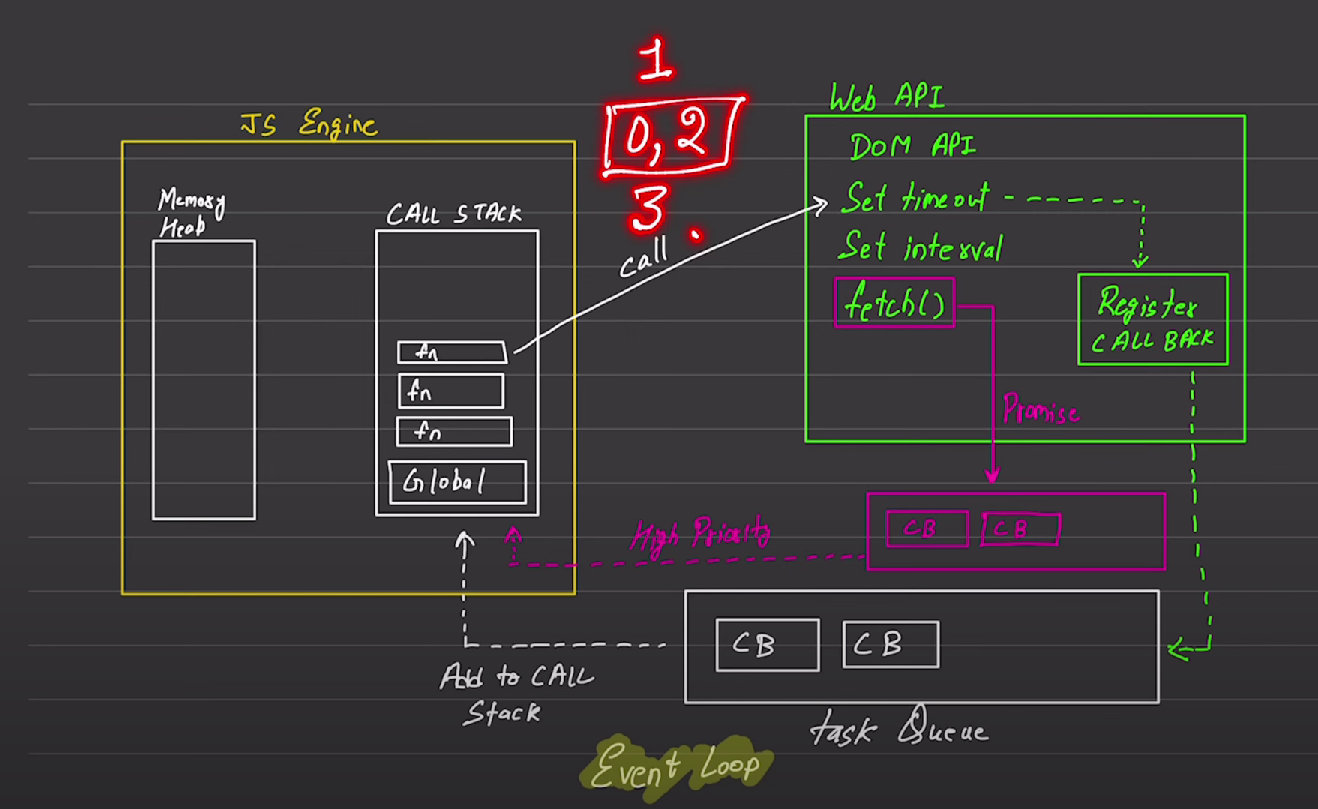 1
0, 2
3
call
JS Engine
Memory
Heab
CALL STACK
fn
fn
fn
Global
Web API
DOM API
Set timeout
Set interval
fetch()
Register
CALL BACK
Promise
CB
CB
High Priority
CB
CB
Add to CALL
Stack
task Queue
Event Loop